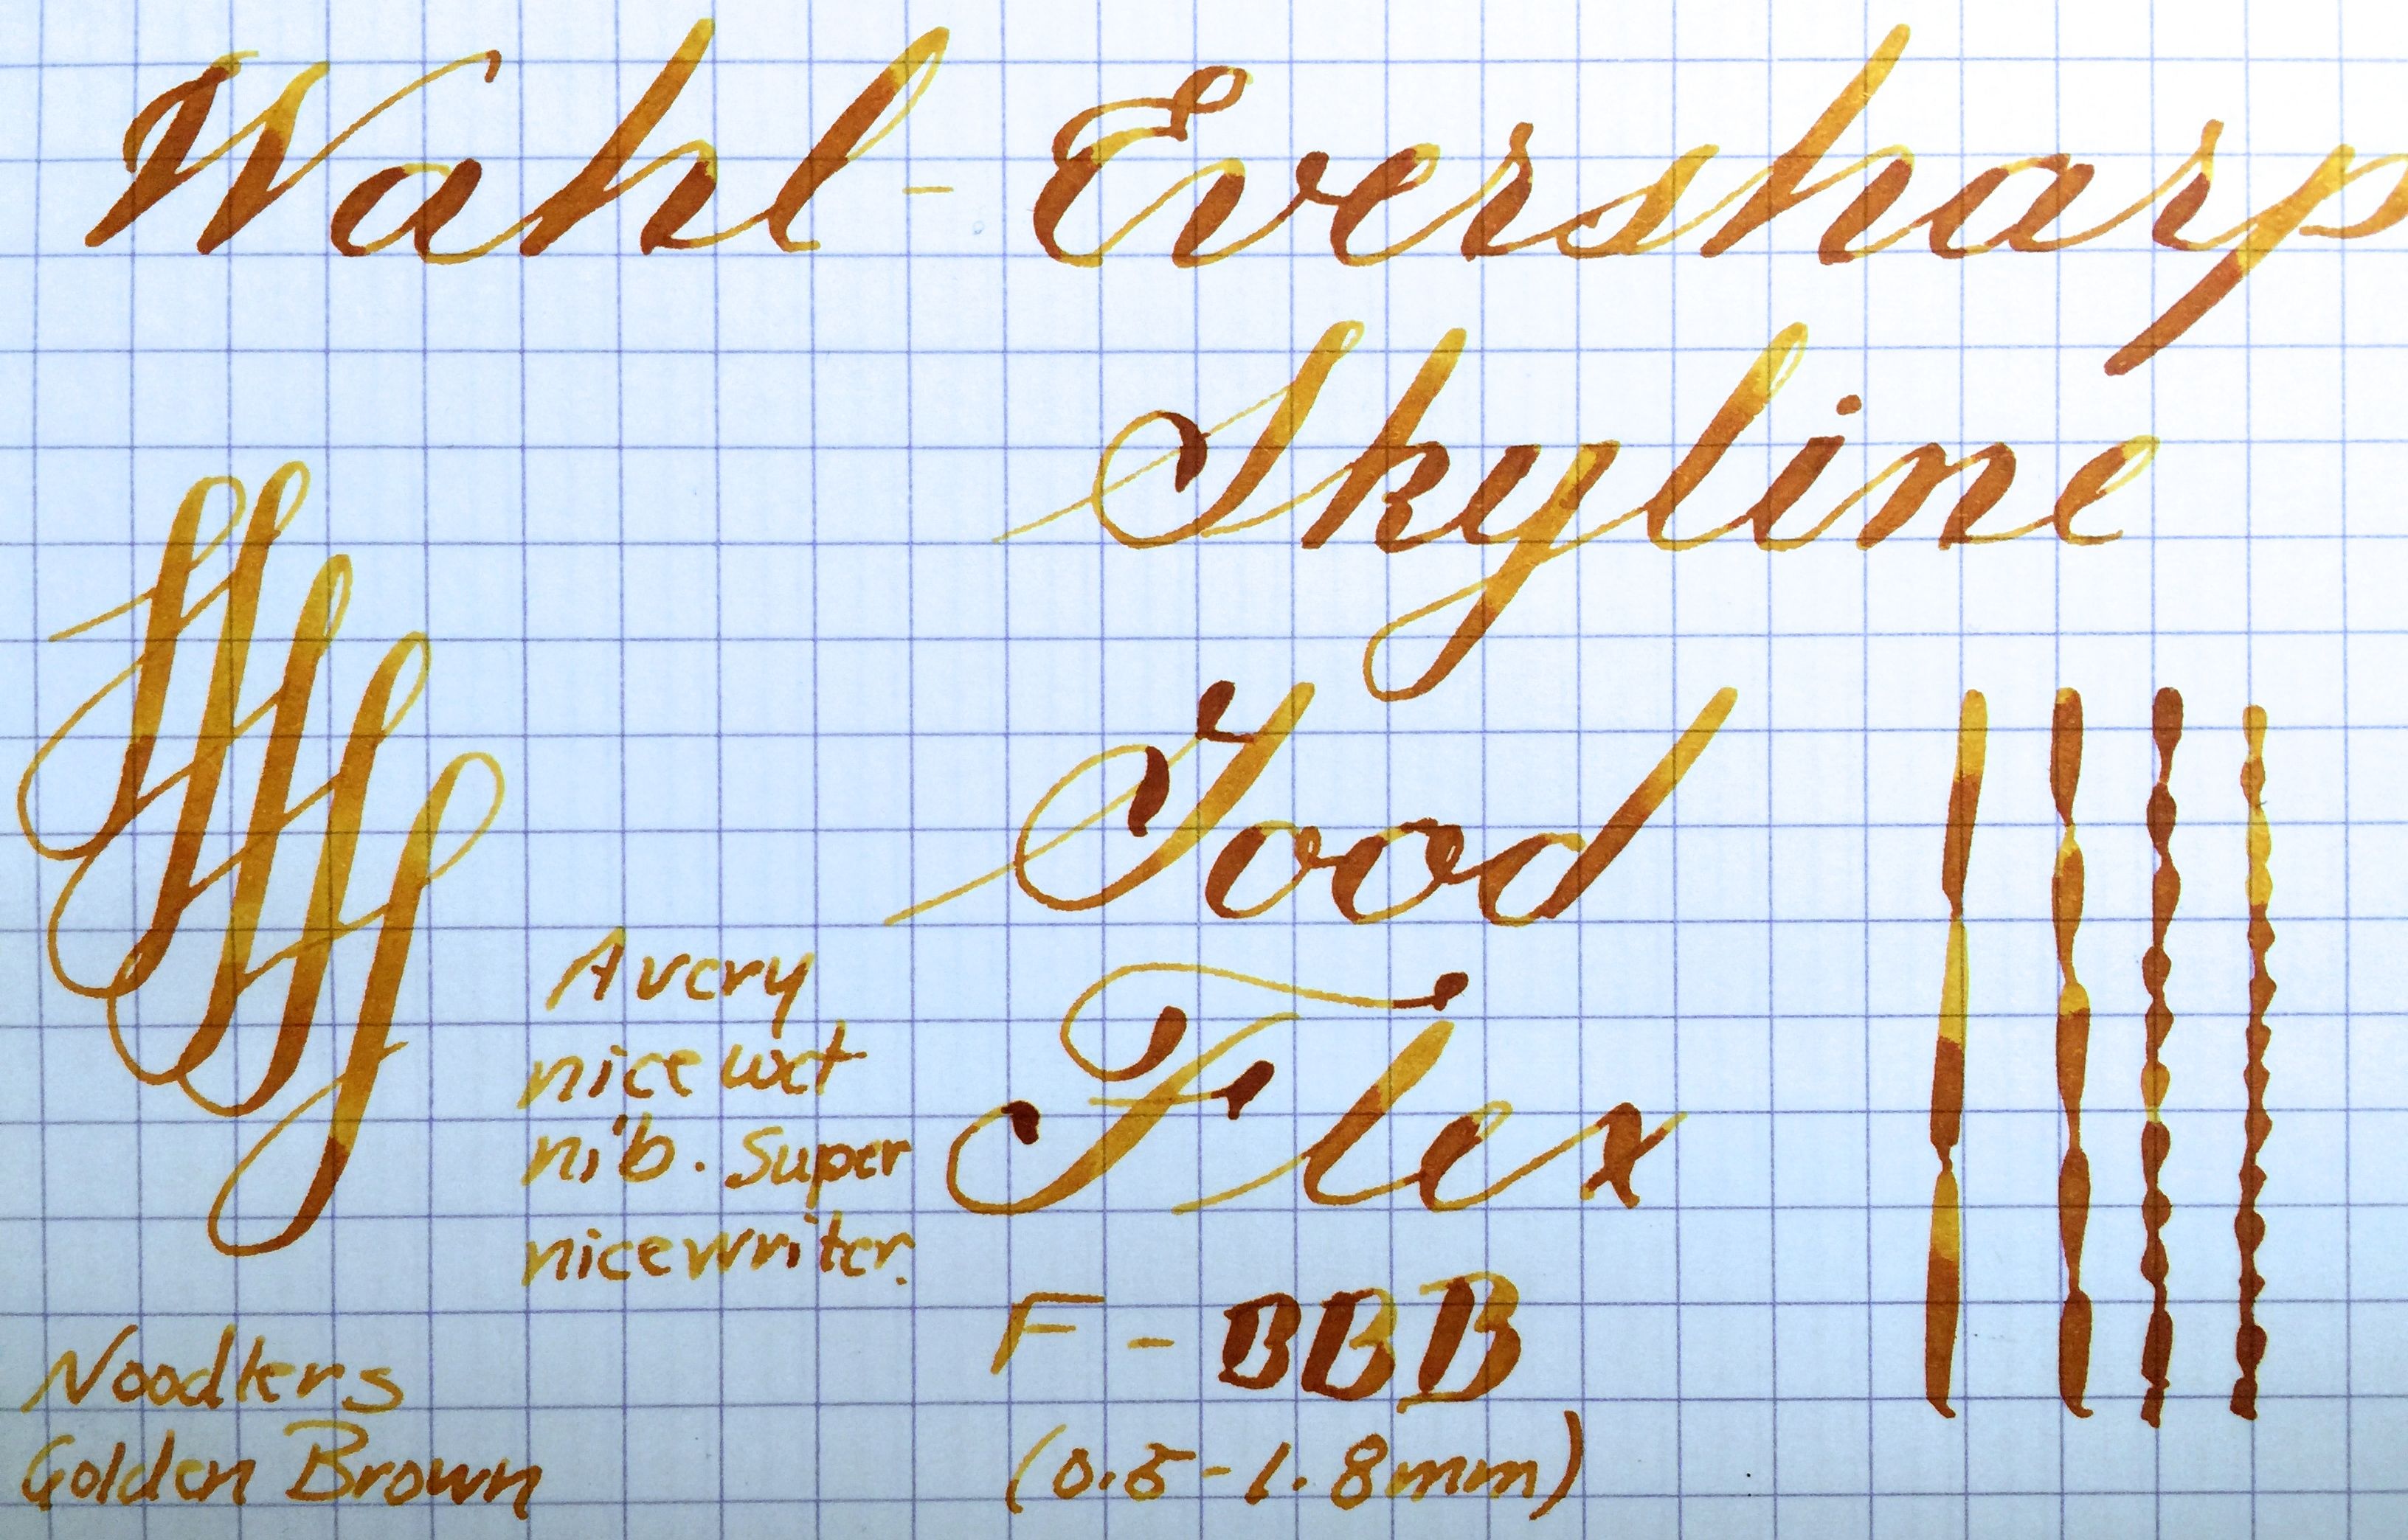 Wahl-Eversharp
Skyline
Good
Flex
F - BBB
(0.5-1.8mm)
A very
nice wet
nib. Super
nice writer.
Noodlers
Golden Brown